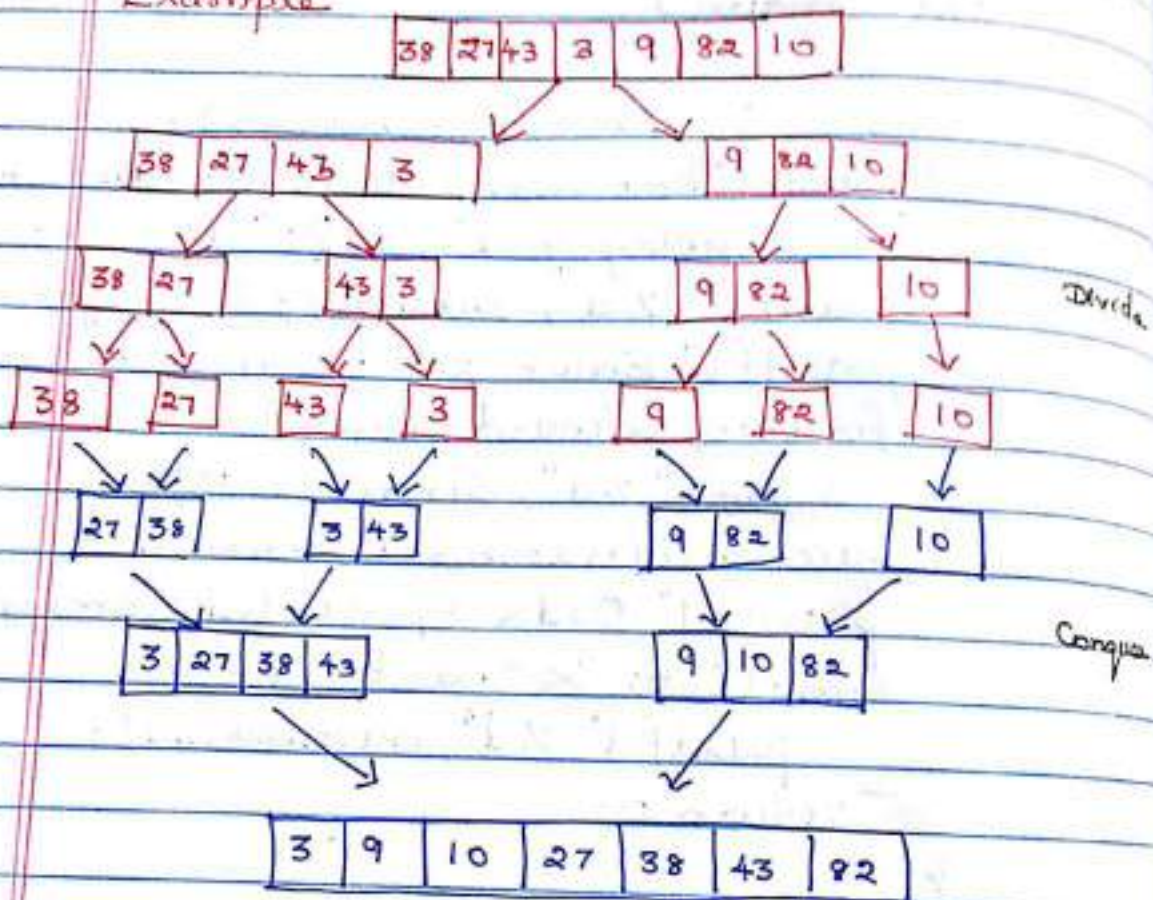 Example
38 27 43 3 9 82 10
38 27 43 3 9 82 10
38 27 43 3 9 82 10 Divide
38 27 43 3 9 82 10
27 38 3 43 9 82 10
3 27 38 43 9 10 82 Conque
3 9 10 27 38 43 82